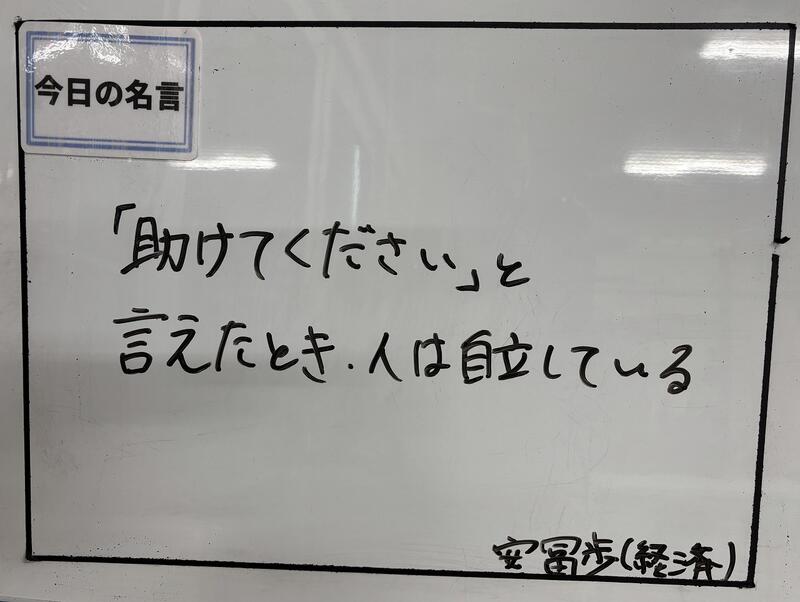 今日の名言
「助けてください」と
言えたとき、人は自立している
安冨歩(経済)